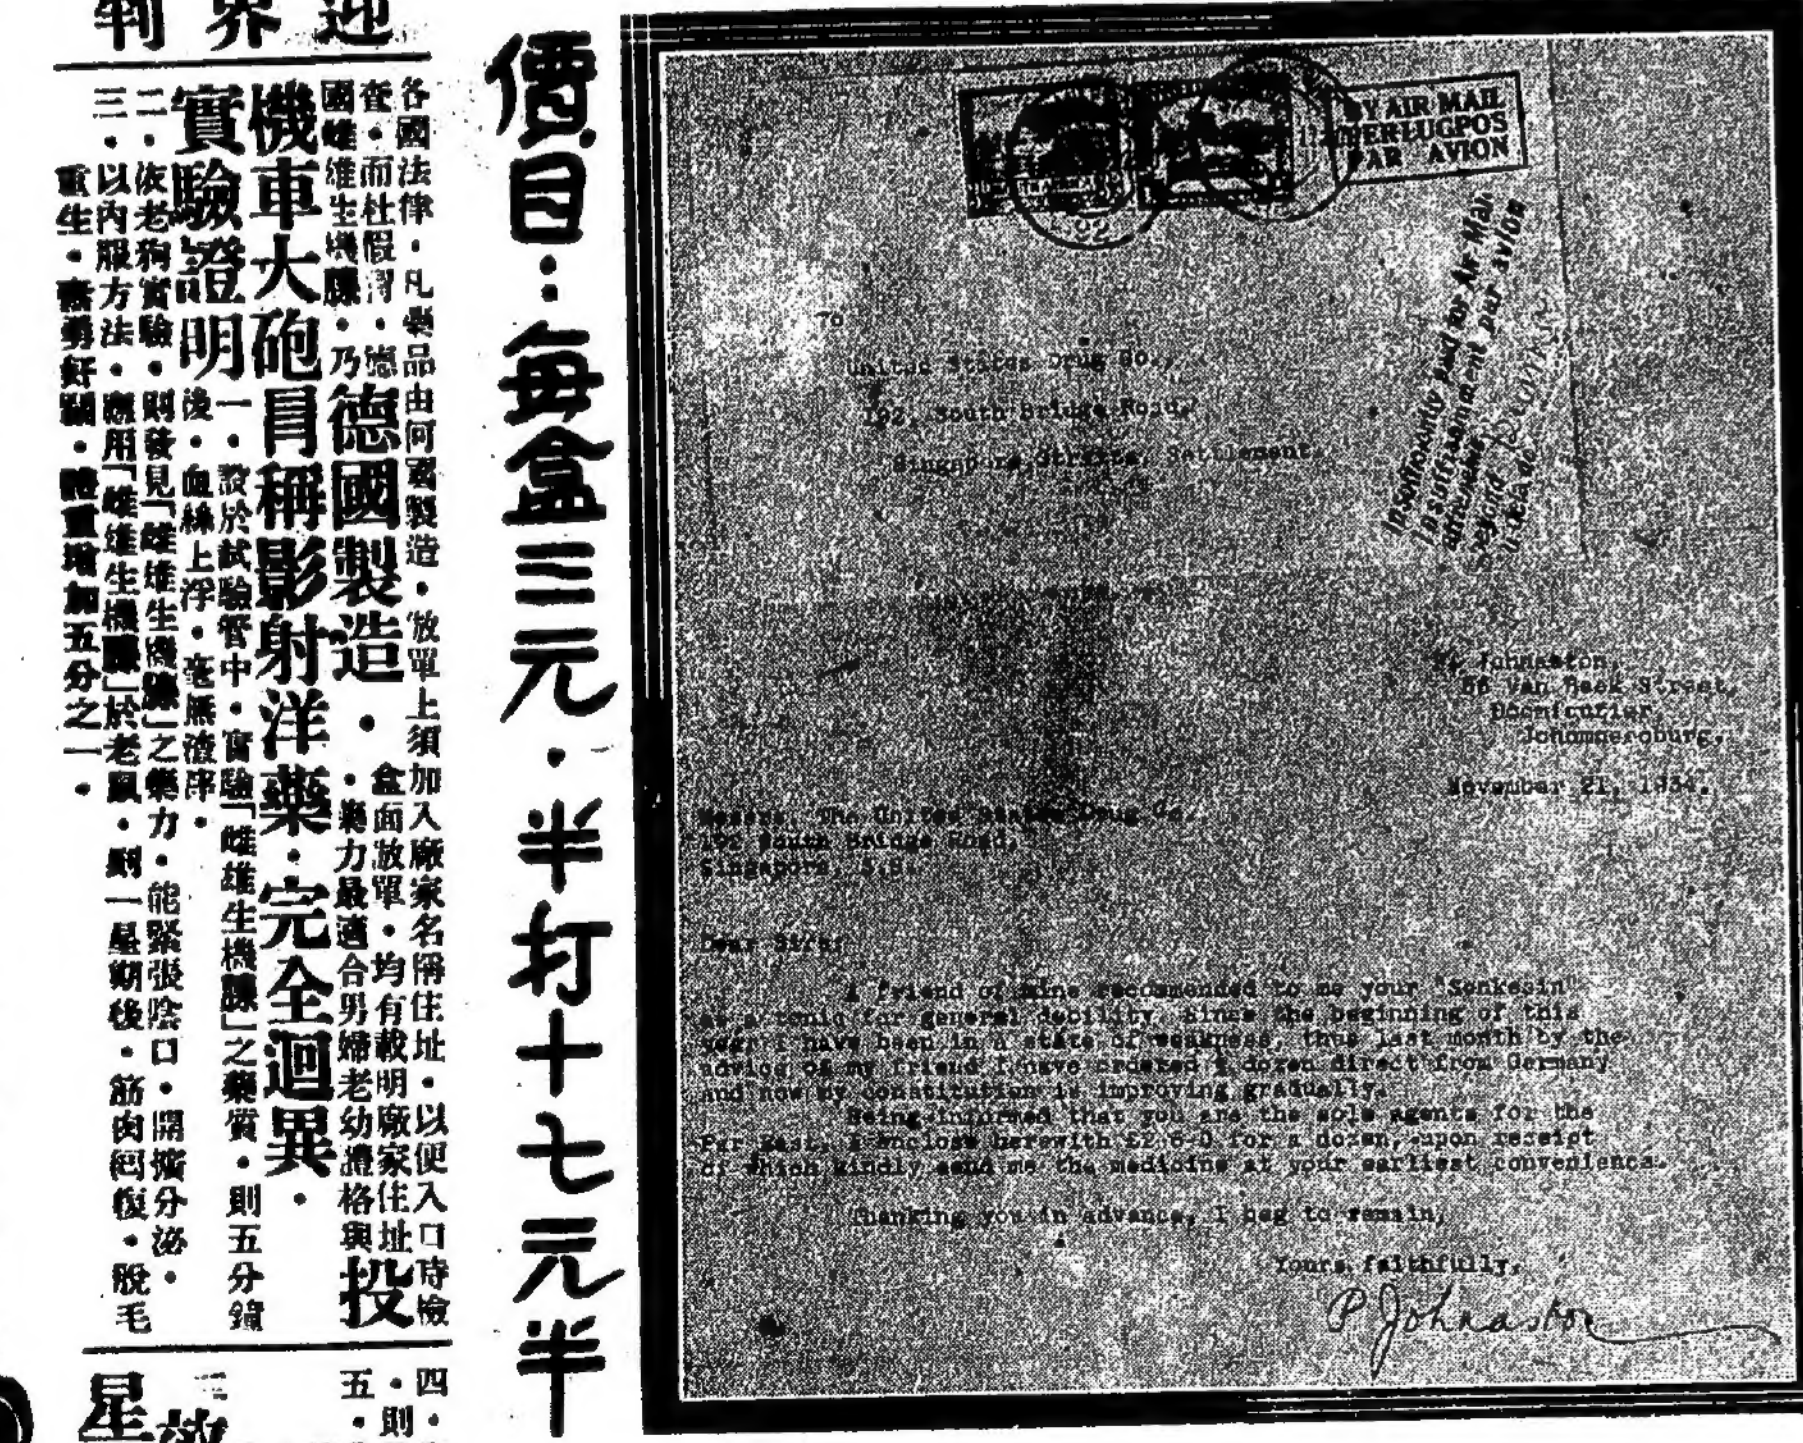 價目：每盒三元．半打十七元半
BY AIR MAIL
PER LUGPOS
PAR AVION
Insufficiently paid for Air Mail
Insuffisamment par avion
affranchie
beyond
au delà de
To
United States Drug Co.,
192, South Bridge Road,
Singapore, Straits, Settlement.
P. Johnaston,
Van Beek Street,
Johannesburg.
November 21, 1934.
Messrs. The United States Drug Co.
192 South Bridge Road,
Singapore, S.S.
Dear Sirs,
A friend of mine recommended to me your "Senkesin"
as a tonic for general debility. Since the beginning of this
year I have been in a state of weakness, thus last month by the
advice of my friend I have ordered 1 dozen direct from Germany
and now my constitution is improving gradually.
Being informed that you are the sole agents for the
Far East, I enclose herewith £2-6-0 for a dozen, upon receipt
of which kindly send me the medicine at your earliest convenience.
Thanking you in advance, I beg to remain,
Yours faithfully,
P Johnaston
迎界判
各國法律．凡藥品由何國製造．放單上須加入廠家名稱住址．以便入口時檢
查．而杜假冒．德盒面放單．均有載明廠家住址
國雌雄生機．乃德國製造．藥力最適合男婦老幼體格與投
機車大砲員稱影射洋藥．完全迴異．
實驗證明
一．設於試驗管中．實驗「雌雄生機」之藥質．則五分鐘
後．血絲上浮．毫無渣滓．
二．依老狗實驗．則發見「雌雄生機」之藥力．能緊張陰口．開擴分泌．
三．以內服方法．應用「雌雄生機」於老鼠．則一星期後．筋肉囘復．脫毛
重生．喜勇好鬭．體重增加五分之一．
四．則
五．
星